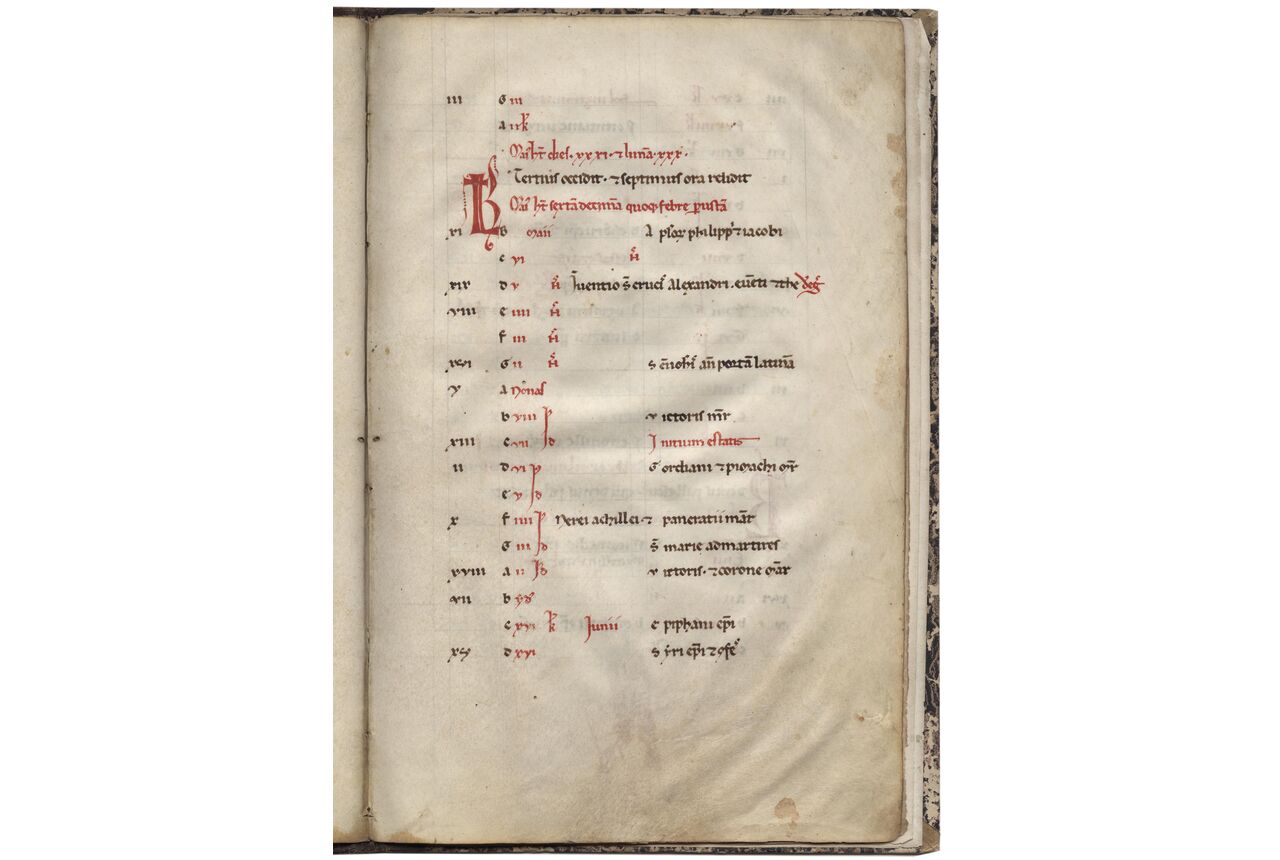 iii G iii
A ii k
Mai' ht dies. xxxi. & luna. xxx.
Tertius occidit. & septimus ora relidit
Mai' ht sexta decima quoq; febre
KL
xi B Maii Aplor philipp' & iacobi
c vi N
xix d v N Inventio s cruc' Alexandri. eventi & the
viii e iiii N
f iii N
xvi G ii N S ioh' an porta latina
v A Nonas
b viii Id Victoris mr
xiii c vii Id Initium estatis
ii d vi Id Gordiani & pimachi mr
e v Id
x f iiii Id Nerei achillei. & pancratii mart
G iii Id S marie ad martires
xviii A ii Id Victoris. & corone mar
vii b Yd'
c xvi k Junii Epiphani epi
xv d xvi Syri epi & cfe'